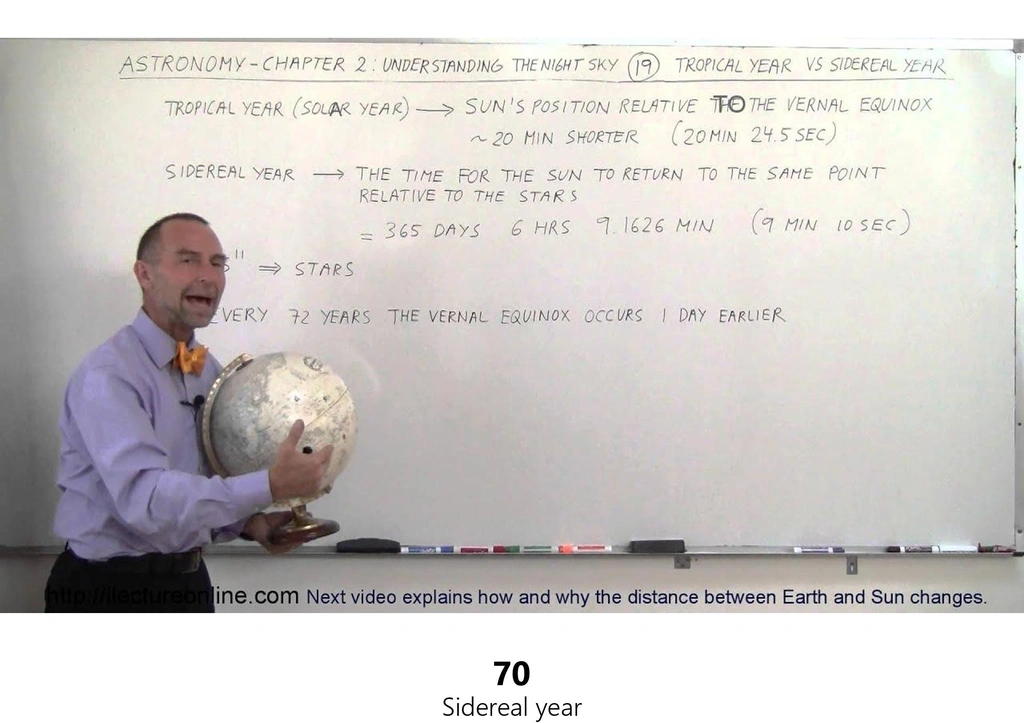 ASTRONOMY - CHAPTER 2: UNDERSTANDING THE NIGHT SKY (19) TROPICAL YEAR VS SIDEREAL YEAR
TROPICAL YEAR (SOLAR YEAR) → SUN'S POSITION RELATIVE TO THE VERNAL EQUINOX
~ 20 MIN SHORTER (20 MIN 24.5 SEC)
SIDEREAL YEAR → THE TIME FOR THE SUN TO RETURN TO THE SAME POINT
RELATIVE TO THE STARS
= 365 DAYS 6 HRS 9.1626 MIN (9 MIN 10 SEC)
⇒ STARS
EVERY 72 YEARS THE VERNAL EQUINOX OCCURS 1 DAY EARLIER
http://ilectureonline.com Next video explains how and why the distance between Earth and Sun changes.
70
Sidereal year